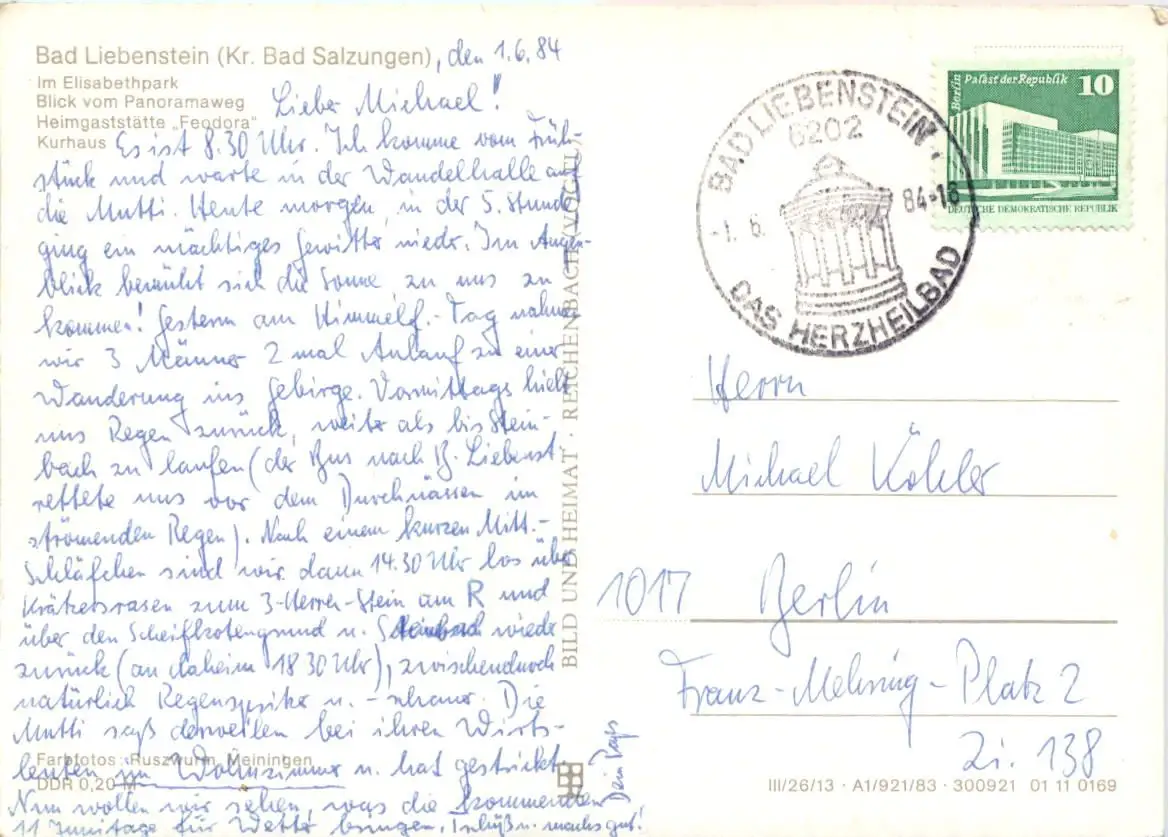 Bad Liebenstein (Kr. Bad Salzungen), den 1.6.84
Im Elisabethpark
Blick vom Panoramaweg
Heimgaststätte „Feodora"
Kurhaus
Lieber Michael!
Es ist 8.30 Uhr. Ich komme vom Früh-
stück und warte in der Wandelhalle auf
die Mutti. Heute morgen in der 5. Stunde
ging ein mächtiges Gewitter nieder. Im Augen-
blick bemüht sich die Sonne zu uns zu
kommen! Gestern am Himmelf.-Tag nahmen
wir 3 Männer 2 mal Anlauf zu einer
Wanderung ins Gebirge. Vormittags hielt
uns Regen zurück, weiter als bis Stein-
bach zu laufen (der Bus nach B. Liebenst.
rettete uns vor dem Durchnässen im
strömenden Regen). Nach einem kurzen Mitt.-
Schläfchen sind wir dann 14.30 Uhr los über
Krätzersrasen zum 3-Herren-Stein am R und
über den Scheifkotengrund u. Steinbach wieder
zurück (an daheim 18 30 Uhr), zwischendurch
natürlich Regenspritzer u. -schauer. Die
Mutti saß derweilen bei ihren Wirts-
leuten im Wohnzimmer u. hat gestrickt.
Nun wollen wir sehen, was die kommenden
11 Junitage für Wetter bringen. Tschüß u. machs gut!
Dein Papa
Farbfotos: Ruszwurm, Meiningen
DDR 0,20 M
BILD UND HEIMAT · REICHENBACH (VOGTL)
BAD LIEBENSTEIN
6202
-1. 6. 84-16
DAS HERZHEILBAD
Berlin Palast der Republik 10
DEUTSCHE DEMOKRATISCHE REPUBLIK
Herrn
Michael Köhler
1017 Berlin
Franz-Mehring-Platz 2
Zi. 138
III/26/13 · A1/921/83 · 300921 01 11 0169